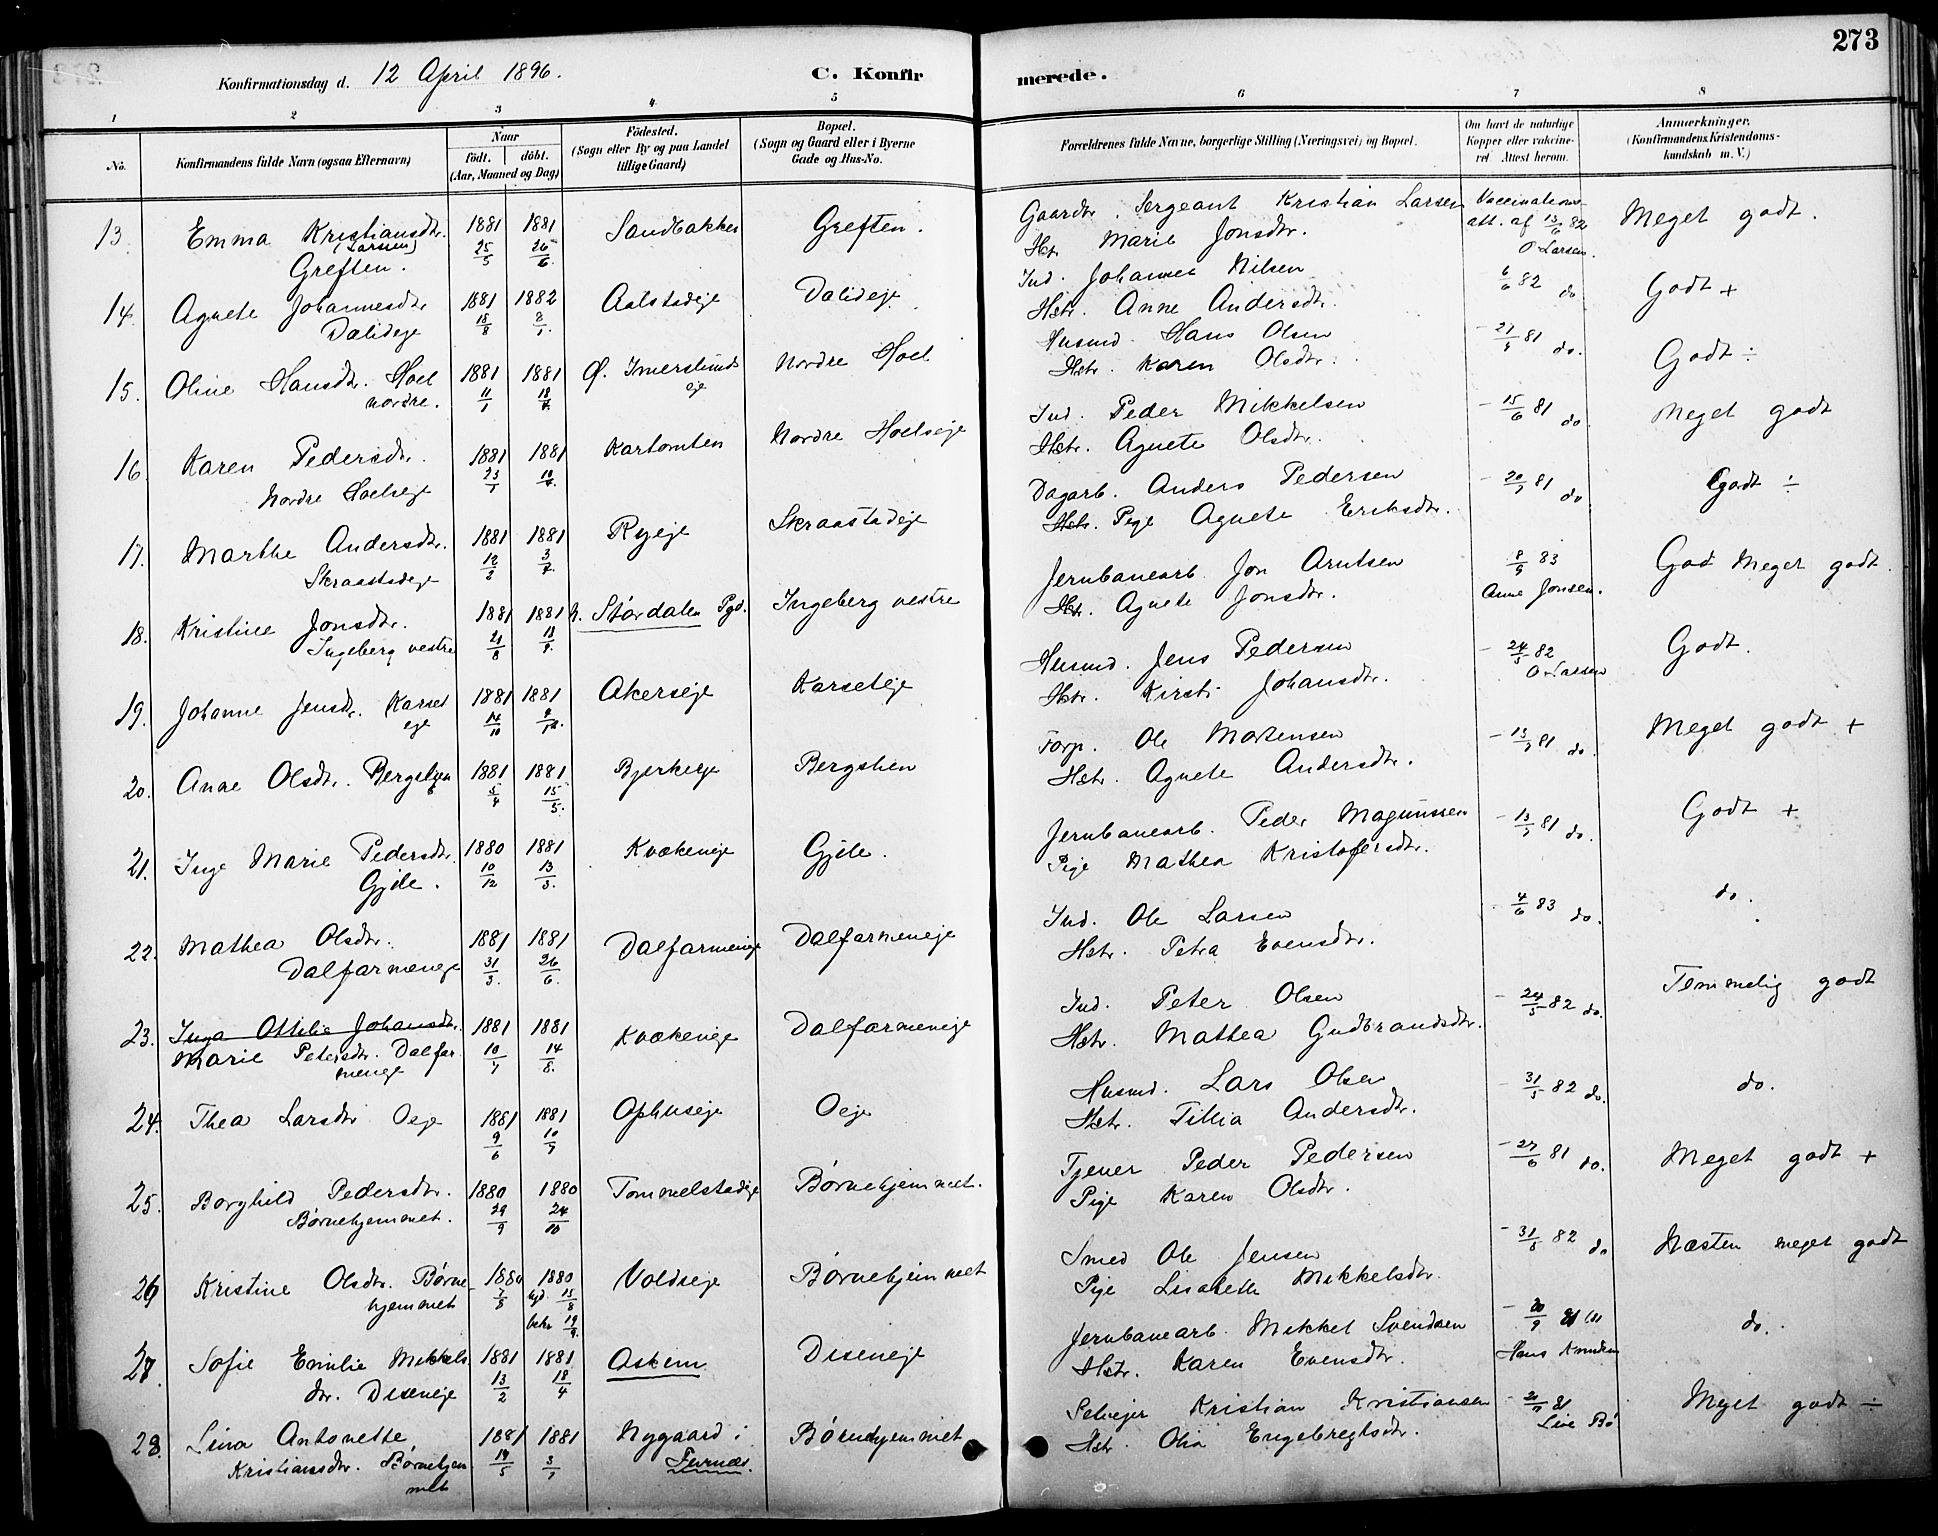 273
Konfirmationsdag d. 12 April 1896.
C. Konfirmerede.
1 2 3 4 5 6 7 8
No.
Konfirmandens fulde Navn (ogsaa Efternavn)
Naar
födt. döbt.
(Aar, Maaned og Dag)
Födested.
(Sogn eller By og paa Landet
tillige Gaard)
Bopæl.
(Sogn og Gaard eller i Byerne
Gade og Hus-No.
Forældrenes fulde Navne, borgerlige Stilling (Næringsvei) og Bopæl.
Om havt de naturlige
Kopper eller vakcineret
Attest herom.
Anmærkninger.
(Konfirmandens Kristendomskundskab
m. V.)
13. Emma Kristiansdtr. 1881 1881 Sandbakken Greften. Gaardbr. Sergeant Kristian Larsen Vaccinations- Meget godt.
(Larsen) 25/5 26/6 Hstr. Marie Jonsdtr. att. af 13/6 82
Greften. O Larsen.
14. Agnete Johannesdtr. 1881 1882 Aalstadeje Dalideje Ind. Johannes Nilsen 6/6 82 do Godt +
Dalideje 18/8 2/1 Hstr. Anne Andersdtr.
15. Oline Hansdtr. Hoel 1881 1881 Ø. Imerslunds Nordre Hoel Husmd. Hans Olsen do. Godt ÷
nordre. 11/1 18/7 eje Hstr. Karen Olsdtr.
16. Karen Pedersdtr. 1881 1881 Kartomten Nordre Hoelseje Ind. Peder Mikkelsen 15/6 81 do Meget godt
Nordre Hoelseje 23/1 Hstr. Agnete Olsdtr.
17. Marthe Andersdtr. 1881 1881 Ryeje Skraastadeje Dagarb. Anders Pedersen 81 do Godt ÷
Skraastadeje 12/2 3/7 Pige Agnete Eriksdtr.
18. Kristine Jonsdtr. 1881 1881 n. Stördalen Pgd. Ingeberg vestre Jernbanearb. Jon Arntsen 8/9 83 Meget godt.
Ingeberg vestre 21/8 Hstr. Agnete Jonsdtr. Anne Jonsen.
19. Johanne Jensdr. Karset 1881 1881 Akerseje Karseteje Husmd. Jens Pedersen 24/5 82 Godt.
eje 14/10 Hstr. Kirsti Johansdtr. O Larsen
20. Anne Olsdtr. Bergslien 1881 1881 Bjerkeeje Bergslien Forp. Ole Mortensen 81 do. Meget godt +
5/4 15/5. Hstr. Agnete Andersdtr.
21. Inge Marie Pedersdtr. 1880 1881 Kvækeneje Gjile. Jernbanearb. Peder Magnussen 81 do. Godt +
Gjile. 10/12 13/3. Pige Mathea Kristofersdtr.
22. Mathea Olsdtr. 1881 1881 Dalfarmeneje Dalfarmeneje Ind. Ole Larsen 4/6 83 do. do.
Dalfarmeneje 31/3. 26/6. Hstr. Petra Evensdtr.
23. Inga Ottilie Johansdtr. 1881 1881 Kvækeneje Dalfarmeneje Ind. Peter Olsen 24/5 82 do. Temmelig godt
Marie Petersdtr. Dalfar 10/7 14/8. Hstr. Mathea Gudbrandsdtr.
meneje
24. Thea Larsdtr Oeje 1881 1881 Ophuseje Oeje Husmd. Lars Olsen 31/5 82 do. do.
9/6 10/7 Hstr. Tillia Andersdtr.
25. Borghild Pedersdtr. 1880 1880 Tommelstadeje Børnehjemmet. Tjener Peder Pedersen 27/6 81 do. Meget godt +
Børnehjemmet. 29/9 24/10 Pige Karen Olsdtr.
26 Kristine Olsdtr. Børne 1880 1880 Voldseje Børnehjemmet Smed Ole Jensen 31/5 82 do Næsten meget godt
hjemmet 7/8 hjd 15/8 Pige Lisabeth Mikkelsdtr.
bekr 19/9.
27. Sofie Emilie Mikkels 1881 1881 Askim Diseneje Jernbanearb. Mikkel Svendsen 20/9 81 do.
dtr. Diseneje 13/2 18/4 Hstr. Karen Evensdtr. Hans Knudsen
28. Lina Antonette 1881 1881 Nygaard i Børnehjemmet Selvejer Kristian Kristiansen 81 Meget godt ÷
Kristiansdtr. Børnehjem 19/5 3/7 Furnæs. Hstr. Olia Engebregtsdtr.
met